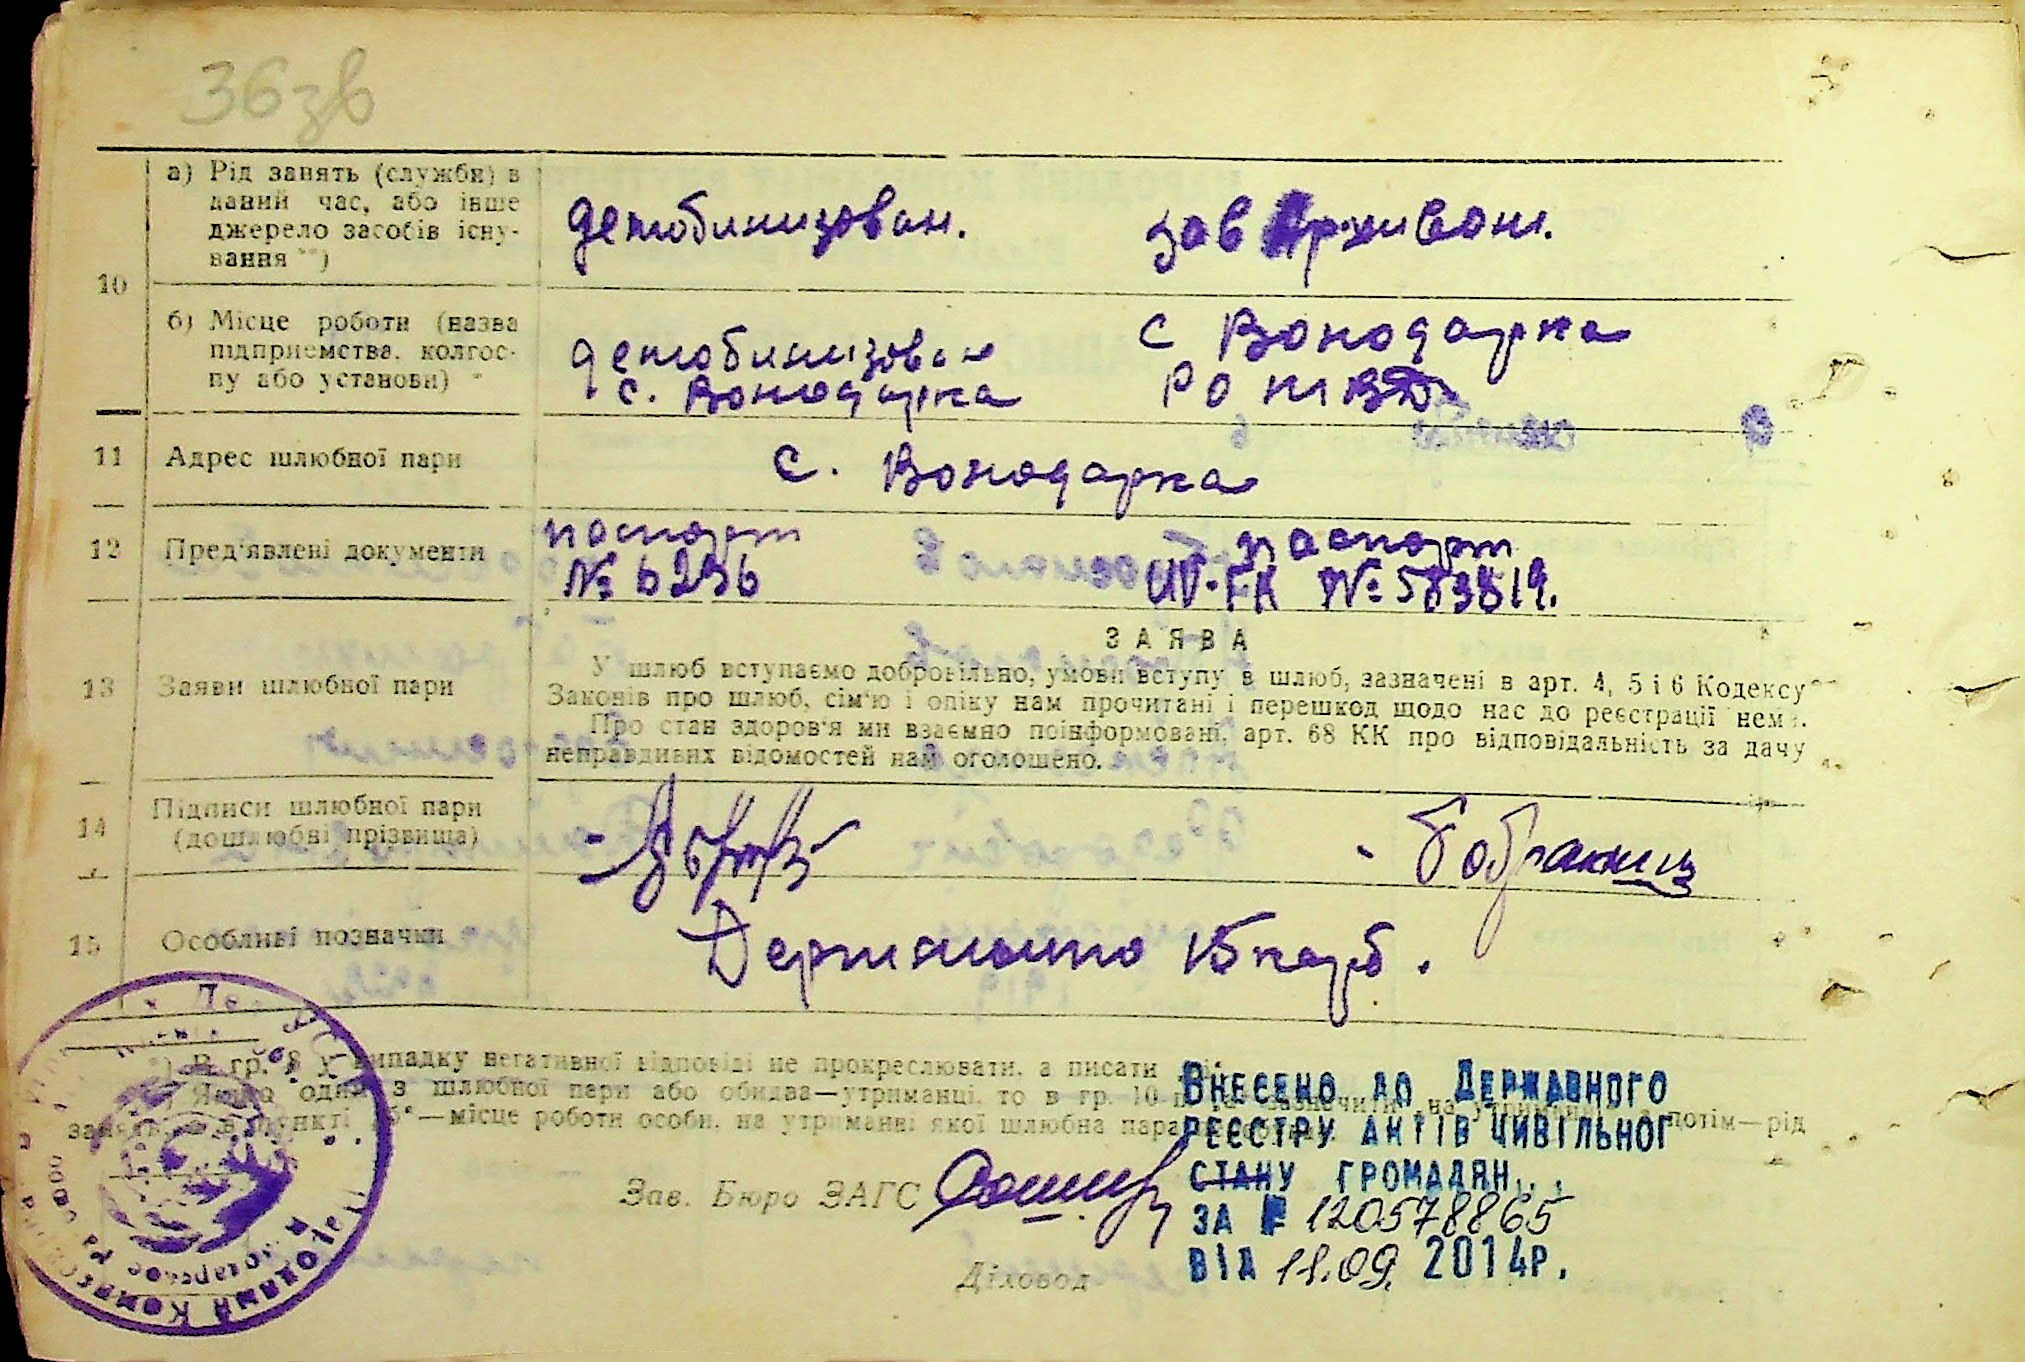 36зв
10
а) Рід занять (служби) в
даний час, або інше
джерело засобів існу-
вання **)
демобилизован.
зав Архивом.
б) Місце роботи (назва
підприємства, колгос-
пу або установи)
демобилизован
с. Володарка
с Володарка
РО МВД
11 Адрес шлюбної пари
с. Володарка
12 Пред'явлені документи
паспорт
№ 6296
паспорт
№ 583819.
13 Заяви шлюбної пари
ЗАЯВА
У шлюб вступаємо добровільно, умови вступу в шлюб, зазначені в арт. 4, 5 і 6 Кодексу
Законів про шлюб, сім'ю і опіку нам прочитані і перешкод щодо нас до реєстрації нема.
Про стан здоров'я ми взаємно поінформовані, арт. 68 КК про відповідальність за дачу
неправдивих відомостей нам оголошено.
14 Підписи шлюбної пари
(дошлюбні прізвища)
15 Особливі позначки
Держмыто 15 карб.
*) В гр. 8 у випадку негативної відповіді не прокреслювати, а писати
Якщо один з шлюбної пари або обидва—утриманці, то в гр. 10 зазначити на утриманні, а потім—рід
занять, а в пункті „б"—місце роботи особи, на утриманні якої шлюбна пара
Зав. Бюро ЗАГС
Діловод
Внесено до Державного
реєстру актів цивільног
стану громадян
за № 120578865
від 18.09. 2014р.